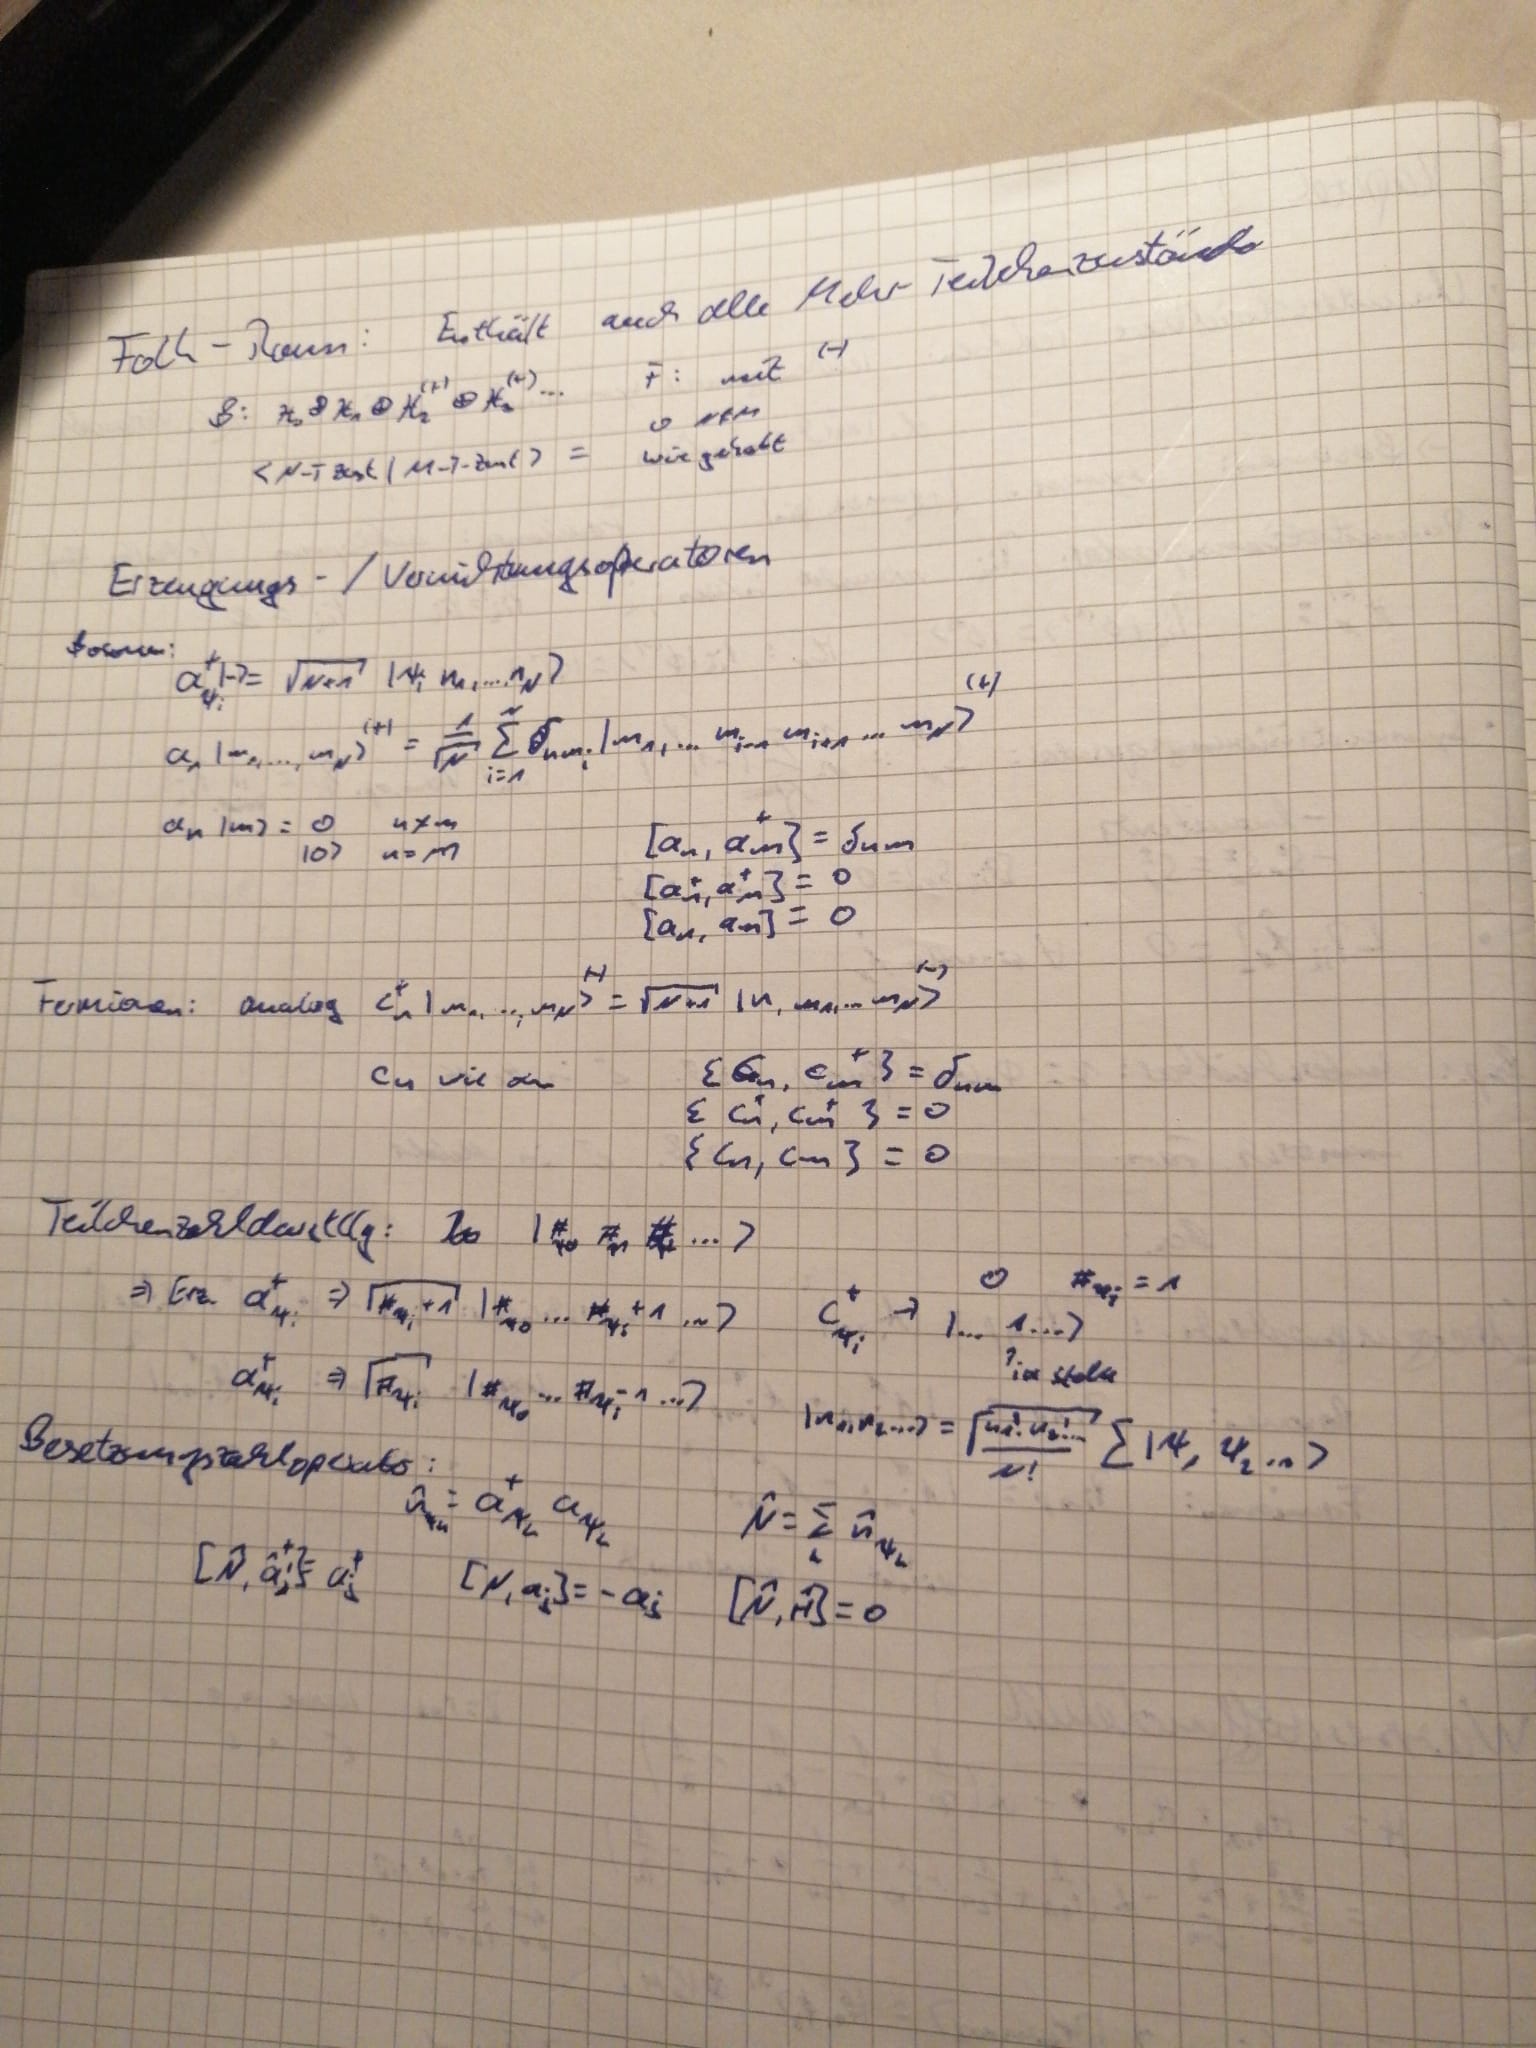 Fock-Raum: Enthält auch alle Mehr-Teilchenzustände
B: H₀ ⊕ H₁ ⊕ H₂⁽⁺⁾ ⊕ H₃⁽⁺⁾ ... F: mit (-)
<N-T-Zust | M-T-Zust> = 0 N≠M
wie gehabt
Erzeugungs-/Vernichtungsoperatoren
Bosonen:
a⁺_ψi |-> = √(N+1) |ψi n₁, ... n_N>
a_n |m₁, ..., m_N>⁽⁺⁾ = 1/√N Σ_{i=1}^N δ_{n m_i} |m₁, ... m_{i-1} m_{i+1} ... m_N>⁽⁺⁾
a_n |m> = 0 n≠m
|0> n=m
[a_n, a⁺_m] = δ_nm
[a⁺_n, a⁺_m] = 0
[a_n, a_m] = 0
Fermionen: analog c⁺_n |m₁, ..., m_N>⁽⁻⁾ = √(N+1) |n, m₁, ... m_N>⁽⁻⁾
c_n wie a_n
{c_n, c⁺_m} = δ_nm
{c⁺_n, c⁺_m} = 0
{c_n, c_m} = 0
Teilchenzahldarstllg: |#_ψ0 #_ψ1 # ... >
⇒ Erz. a⁺_ψi ⇒ √(#_ψi + 1) |#_ψ0 ... #_ψi + 1 ...> c⁺_ψi → 0 #_ψi = 1
|... 1 ...>
↑ i-te Stelle
a⁺_ψi ⇒ √#_ψi |#_ψ0 ... #_ψi - 1 ...>
|n₁, n₂ ...> = √(n₁! n₂! ...)/N! Σ |ψ₁ ψ₂ ...>
Besetzungszahloperator:
n̂_ψk = a⁺_ψk a_ψk N̂ = Σ_k n̂_ψk
[N̂, â⁺_j] = a⁺_j [N, a_j] = -a_j [N̂, Ĥ] = 0